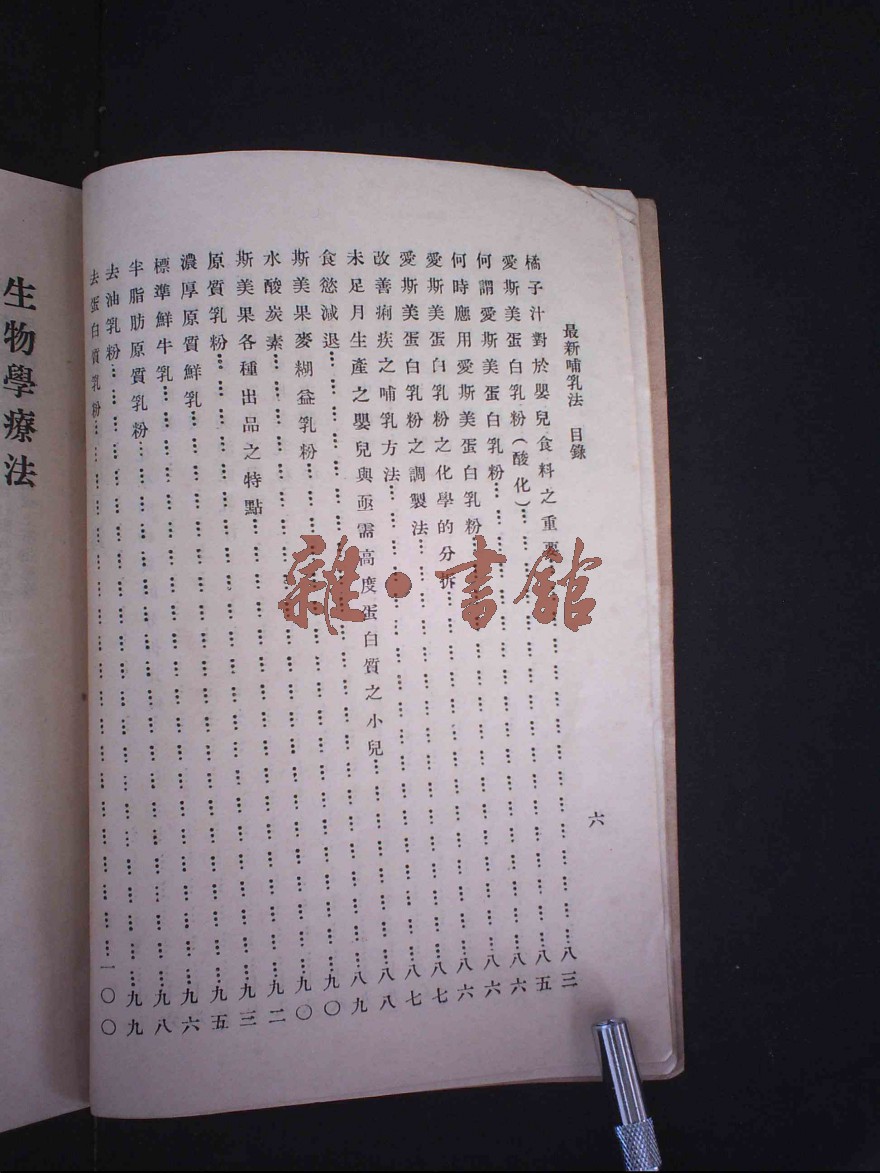 最新哺乳法 目錄 六
橘子汁對於嬰兒食料之重要……八三
愛斯美蛋白乳粉(酸化)……八五
何謂愛斯美蛋白乳粉……八六
何時應用愛斯美蛋白乳粉……八六
愛斯美蛋白乳粉之化學的分拆……八六
愛斯美蛋白乳粉之調製法……八七
改善痢疾之哺乳方法……八七
未足月生產之嬰兒與亟需高度蛋白質之小兒……八八
食慾減退……八九
斯美果麥糊益乳粉……九〇
水酸炭素……九〇
斯美果各種出品之特點……九二
原質乳粉……九三
濃厚原質鮮乳……九五
標準鮮牛乳……九六
半脂肪原質乳粉……九八
去油乳粉……九九
去蛋白質乳粉……一〇〇
生物學療法
雜·書館